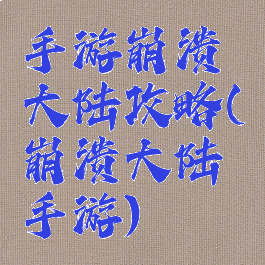 手游崩溃
大陆攻略(
崩溃大陆
手游)